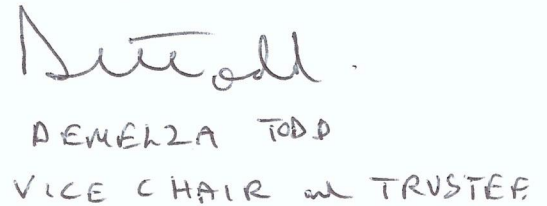 DEMELZA TODD
VICE CHAIR and TRUSTEE